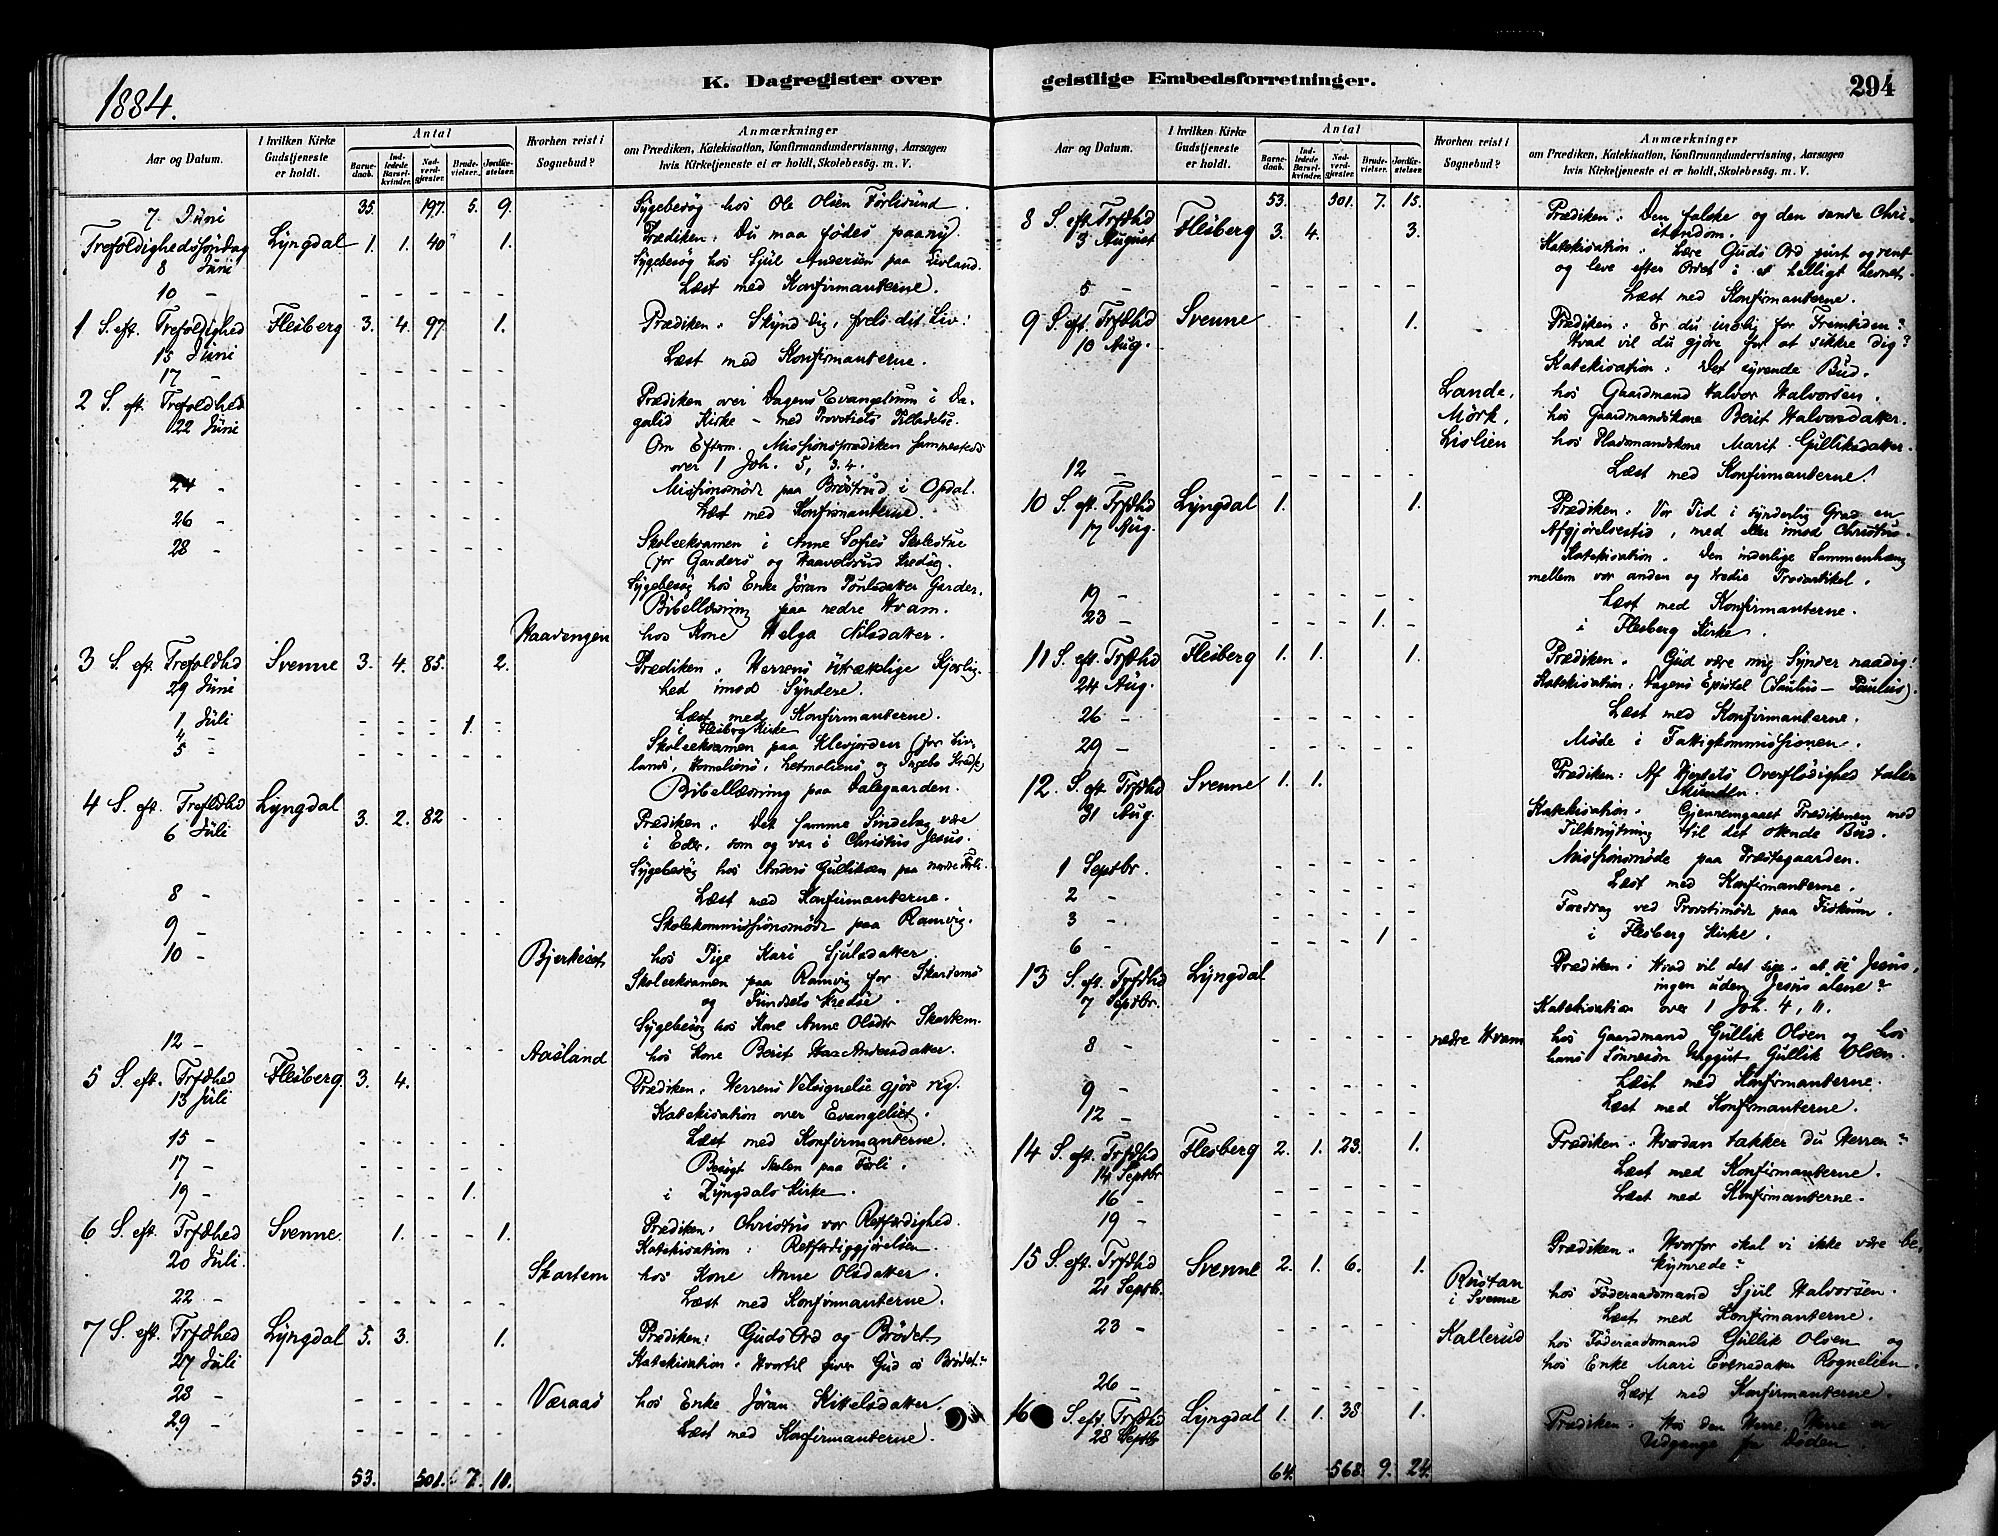 1884.
K. Dagregister over
geistlige Embedsforretninger.
294
Aar og Datum.
I hvilken Kirke Gudstjeneste er holdt.
Antal
Barnedaab.
Indledede Barselkvinder.
Nadverdgjæster.
Brudevielser.
Jordfæstelser.
Hvorhen reist i Sognebud?
Anmærkninger
om Prædiken, Katekisation, Konfirmandundervisning, Aarsagen
hvis Kirketjeneste ei er holdt, Skolebesøg. m. V.
35. 197. 5. 9.
7 Juni Sygebesøg hos Ole Olsen
Trefoldighedssöndag Lyngdal 1. 1. 40 1. Prædiken: Du maa födes paany.
8 Juni Sygebesøg hos Sjul Andersen paa Livland.
10 - Læst med Konfirmanterne.
1 S. eft. Trefoldighed Flesberg 3. 4. 97 1. Prædiken: Skynd dig, frels dit Liv!
15 Juni
17 - Læst med Konfirmanterne.
2 S. eft. Trefoldhed Prædiken over Dagens Evangelium i Da-
22 Juni galid Kirke - med Provstiets Tilladelse.
Om Efterm. Missionsprædiken sammesteds
over 1 Joh. 5, 3.4.
24 - Missionsmøde paa Bröstrud i Opdal.
26 - Læst med Konfirmanterne.
28 - Skoleexamen i Anne Sofies Skolestue
(for Garders og Haavelsrud Kreds).
Sygebesøg hos Enke Jöran Poulsdatter Garder.
Bibellæsning paa nedre Hvam.
Haavengen hos Kone Helga Nilsdatter.
3 S. eft. Trefoldhd Svenne 3. 4. 85. 2. Prædiken: Herrens Kjærlig-
29 Juni hed imod Syndere.
1 Juli Læst med Konfirmanterne.
4 - 1. i Flesberg Kirke
5 - Skoleexamen paa Klevjorden (for Liv-
lands, og Ingebo Kreds)
Bibellæsning paa Dalegaarden.
4 S. eft. Trefldhd Lyngdal 3. 2. 82 Prædiken: Det samme Sindelag være
6 Juli i Eder, som og var i Christus Jesus.
Sygebesøg hos Anders Gulliksen paa nordre Förli.
8 - Læst med Konfirmanterne.
9 - Skolekommissionsmöde paa Ramvig.
10 - Bjerkeset hos Pige Kari Sjulsdatter
Skoleexamen paa Ramvig for Skartems
og Kredse.
Sygebesøg hos Kone Anne Olsdtr Skartem.
12 - Aasland hos Kone Berit Andersdatter.
5 S. eft. Trfdhed Flesberg 3. 4. Prædiken: Herrens Velsignelse gjör rig.
13 Juli Katekisation over Evangeliet.
15 - Læst med Konfirmanterne.
17 - Besögt Skolen paa Förli.
19 - 1. i Lyngdals Kirke.
6 S. eft. Trfdhed Svenne 1. 1. Prædiken: Christus vor Retfærdighed.
20 Juli Katekisation: Retfærdiggjørelsen
Skartem hos Kone Anne Olsdatter.
22 - Læst med Konfirmanterne.
7 S. eft. Trfdhed Lyngdal 5. 3. 1. Prædiken: Guds Ord og Brödet
27 Juli Katekisation: Hvortil giver Gud os Brödet?
28 - Væraas hos Enke Jöran Kittelsdatter.
29 - Læst med Konfirmanterne.
53. 501. 7. 18.
Aar og Datum.
I hvilken Kirke Gudstjeneste er holdt.
Antal
Barnedaab.
Indledede Barselkvinder.
Nadverdgjæster.
Brudevielser.
Jordfæstelser.
Hvorhen reist i Sognebud?
Anmærkninger
om Prædiken, Katekisation, Konfirmandundervisning, Aarsagen
hvis Kirketjeneste ei er holdt, Skolebesög. m. V.
53. 501. 7. 15.
8 S. eft Trfdhd Flesberg 3. 4. 3. Prædiken: Den falske og den sande Chri-
3 August stendom.
Katekisation: Lære Guds Ord purt og rent
og leve efter Ordet i et helligt Levnet.
5 - Læst med Konfirmanterne.
9 S. eft. Trfdhd Svenne 1. Prædiken: Er du urolig for Fremtiden?
10 Aug. Hvad vil du gjöre for at sikke dig?
Katekisation: Det syvende Bud.
Lande, hos Gaardmand Halvor Halvorsen.
Mörk, hos Gaardmandskone Berit Halvorsdatter.
Lislien hos Pladsmandskone Marit Gulliksdatter.
12 - Læst med Konfirmanterne.
10 S. eft. Trfdhd Lyngdal 1. 1. Prædiken: Vor Tid i synderlig Grad en
17 Aug. Afgjörelsestid, med eller imod Christus.
Katekisation. Den inderlige Sammenhæng
mellem vor anden og tredie Trosartikel.
19 - Læst med Konfirmanterne.
23 - 1. i Flesberg Kirke.
11 S. eft. Trfdhd Flesberg 1. 1. 1. Prædiken: Gud være mig Synder naadig!
24 Aug. Katekisation: Dagens Epistel (Saulus - Paulus).
26 - Læst med Konfirmanterne.
29 - Möde i Fattigkommissionen.
12. S. eft. Trfdhd Svenne 1. 1. Prædiken: Af Hjertets Overflödighed taler
31 Aug. Munden.
Katekisation: Gjennemgaaet Prædikenen med
Tilknytning til det ottende Bud.
1 Septbr. Missionsmöde paa Præstegaarden.
2 - Læst med Konfirmanterne.
3 - Foredrag ved Provstimöde paa Fiskum.
6 - 1 i Flesberg Kirke.
13 S. eft. Trfdhd Lyngdal Prædiken: Hvad vil det sige at se Jesus,
7 Septbr. ingen uden Jesus alene?
Katekisation over 1 Joh. 4, 11.
8 - nedre Hvam hos Gaardmand Gullik Olsen og hos
hans Sönnesön Gullik Olsen.
9 - Læst med Konfirmanterne.
12 - Læst med Konfirmanterne.
14 S. eft. Trfdhd Flesberg 2. 1. 23. 1. Prædiken: Hvordan takker du Herren?
14 Septbr
16 - Læst med Konfirmanterne.
19 - Læst med Konfirmanterne.
15 S. eft. Trfdhd Svenne 2. 1. 6. 1. Prædiken: Hvorfor skal vi ikke være be-
21 Septbr. kymrede?
Rustan i Svenne hos Föderaadsmand Sjul Halvorsen.
23 - Læst med Konfirmanterne.
Kallerud hos Föderaadsmand Gullik Olsen og
hos Enke Mari Evensdatter Rognelien.
26 - Læst med Konfirmanterne.
16 S. eft. Trfdhd Lyngdal 1. 1. 38. 1. Prædiken: Hos den Herre, Herre er
28 Septbr Udgange fra Döden.
64. 568. 9. 24.